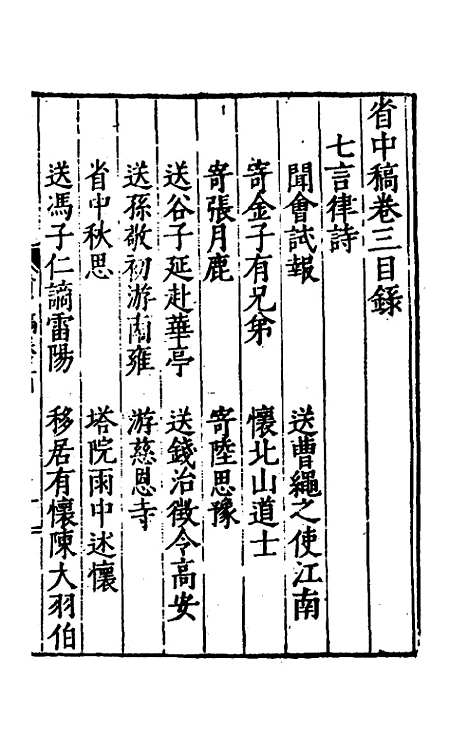 省中稿卷三目錄
七言律詩
聞會試報　送曹繩之使江南
寄金子有兄弟　懷北山道士
寄張月鹿　寄陸思豫
送谷子延赴華亭　送錢治徵令高安
送孫敬初游南雍　游慈恩寺
省中秋思　塔院雨中述懷
送馮子仁謫雷陽　移居有懷陳大羽伯